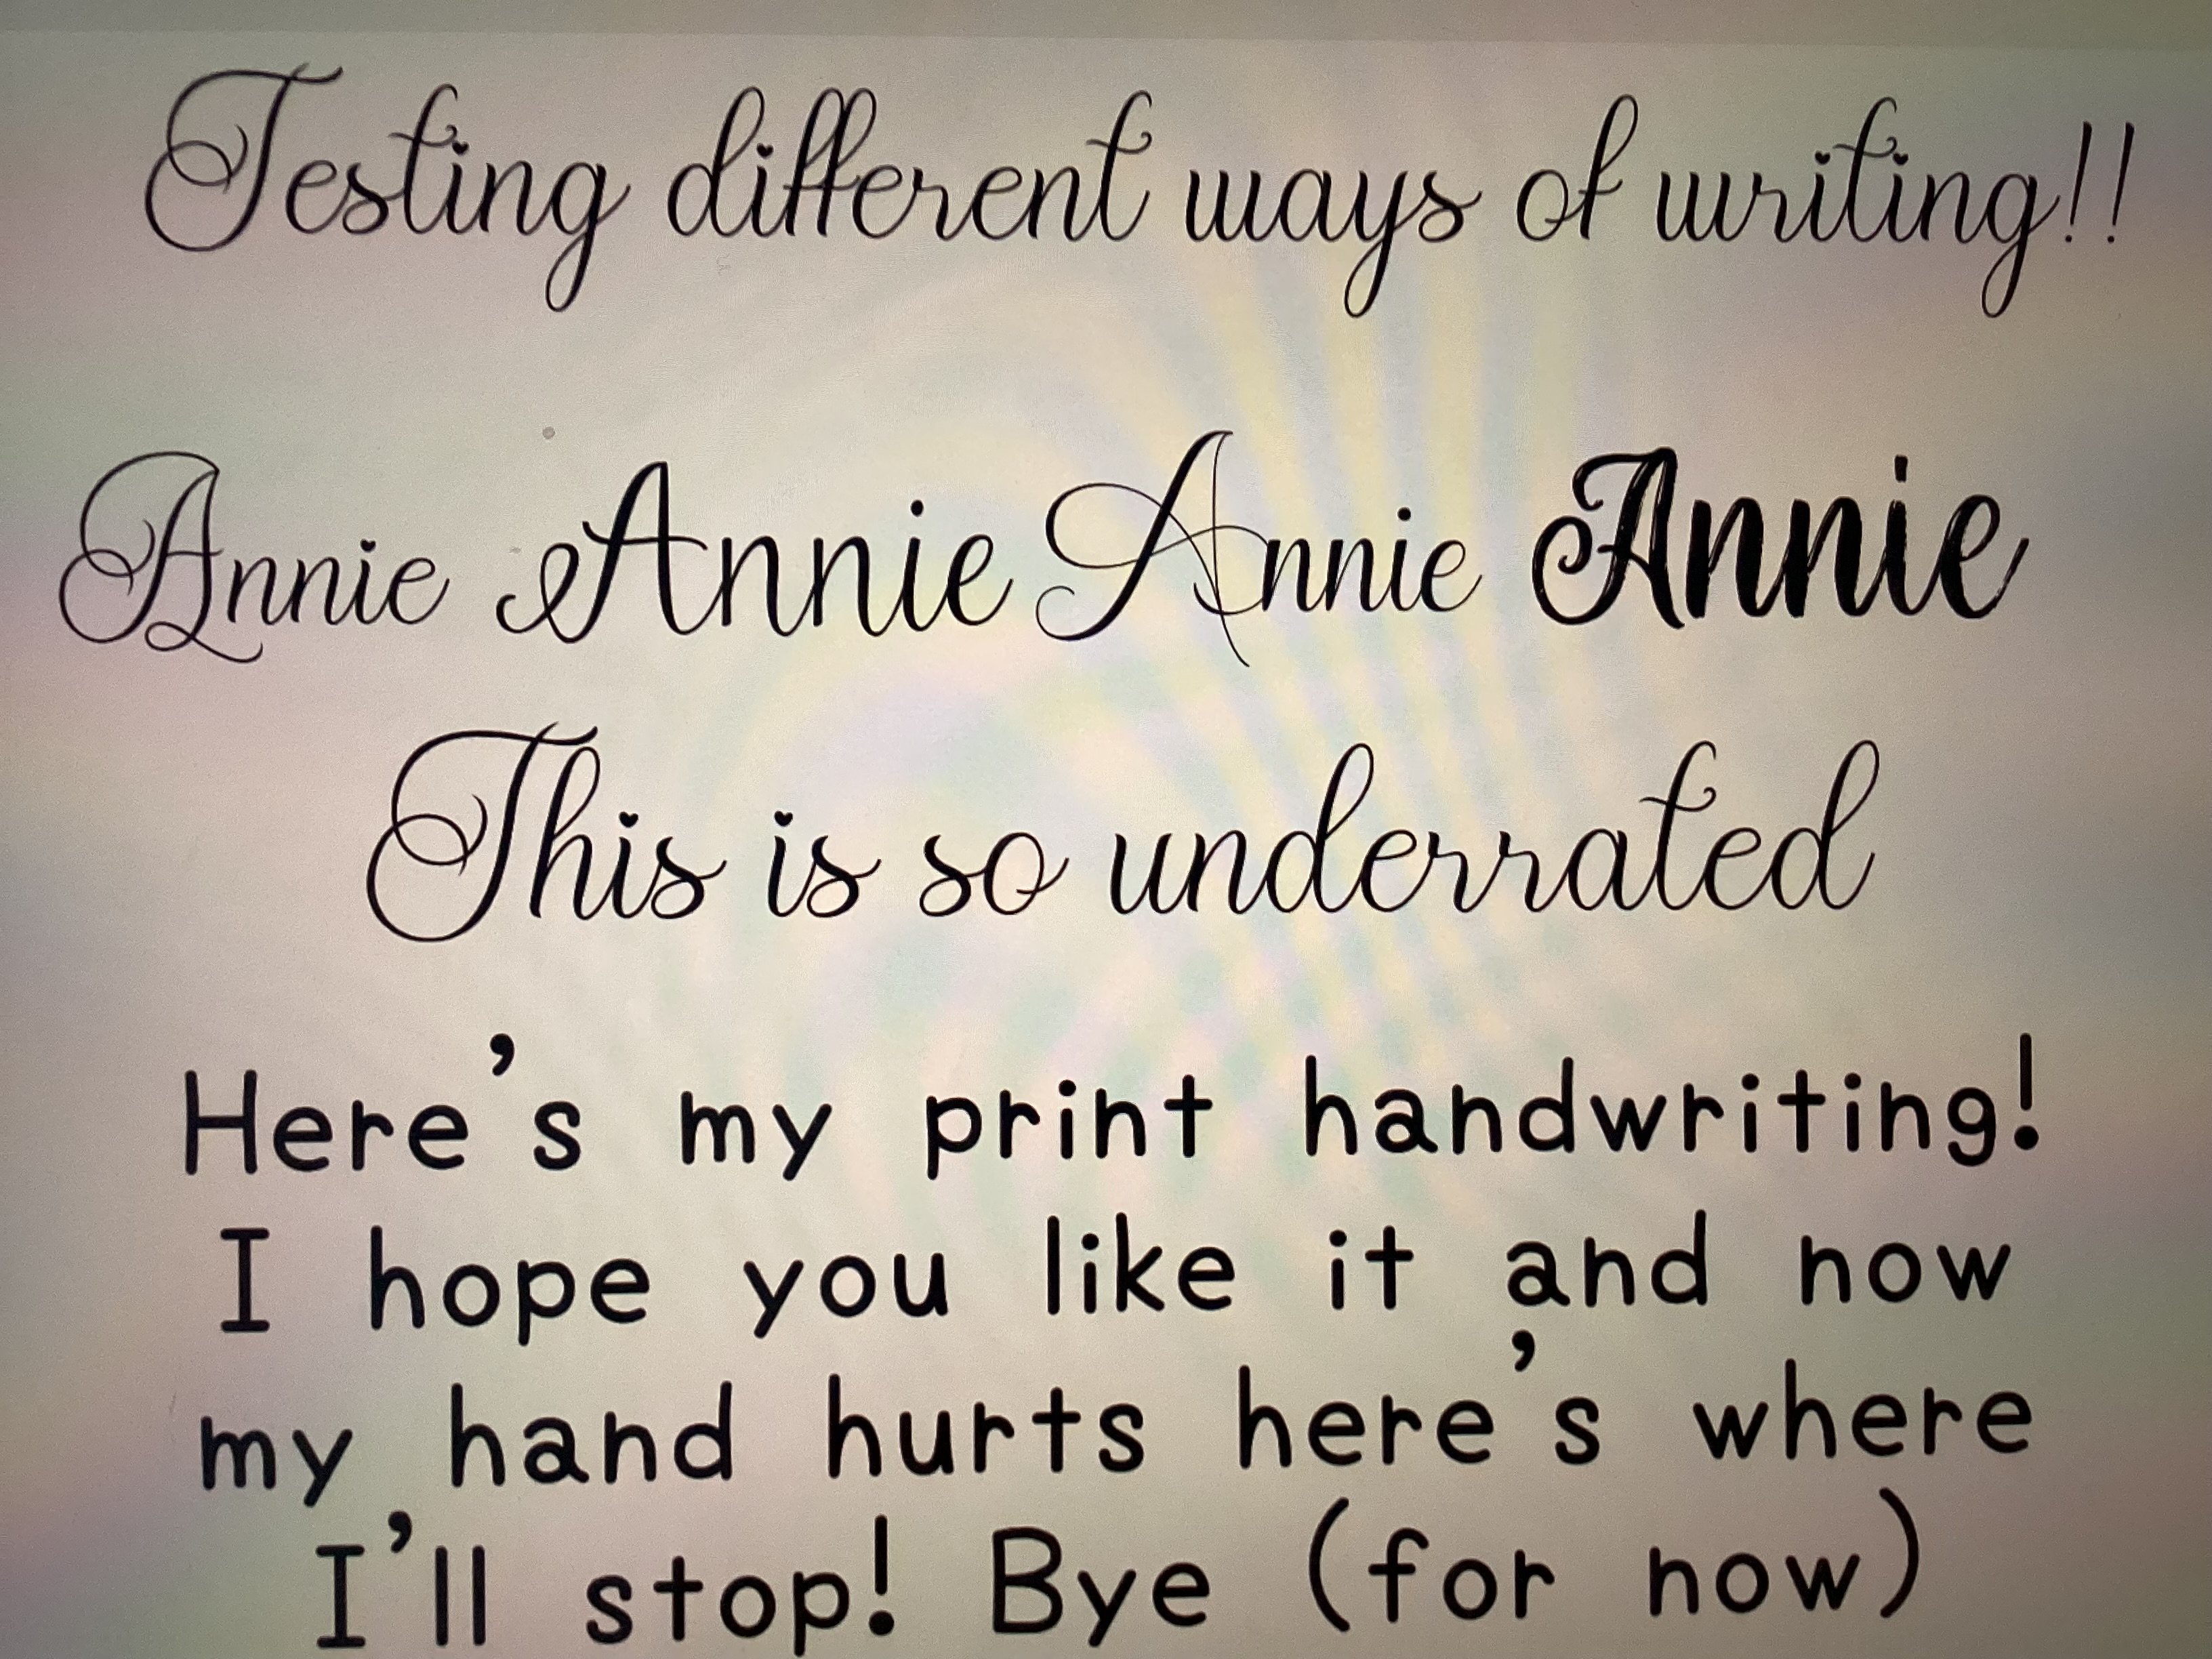 Testing different ways of writing!!
Annie Annie Annie Annie
This is so underrated
Here's my print handwriting!
I hope you like it and now
my hand hurts here's where
I'll stop! Bye (for now)